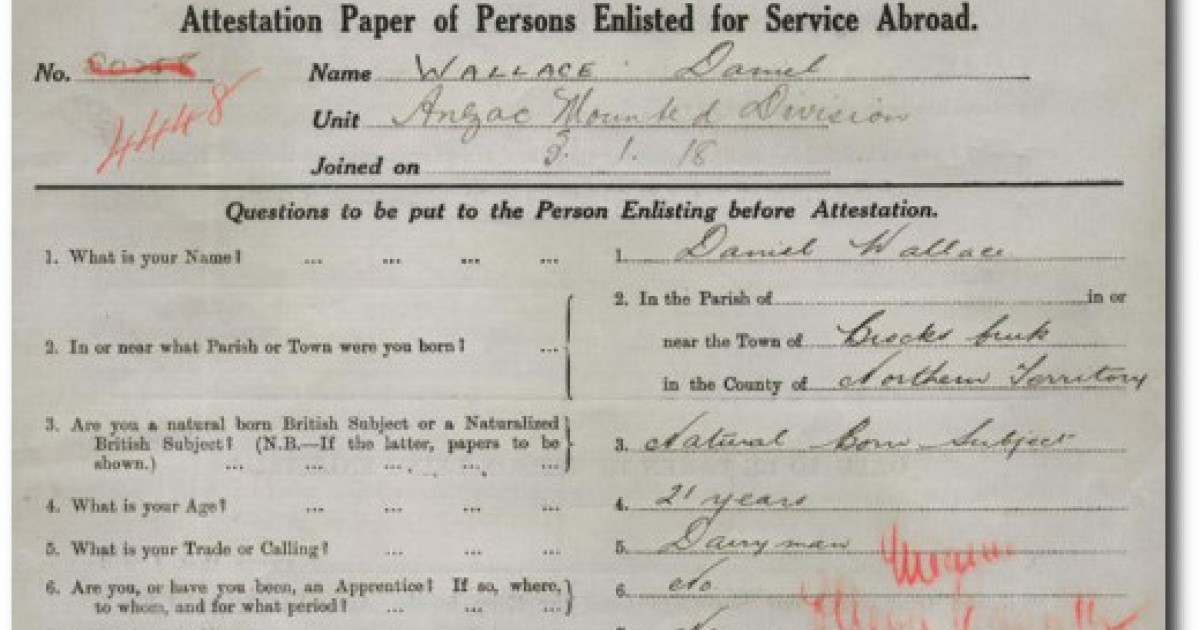 Attestation Paper of Persons Enlisted for Service Abroad.
No.
4448
Name WALLACE Daniel
Unit Anzac Mounted Division
Joined on 3. 1. 18
Questions to be put to the Person Enlisting before Attestation.
1. What is your Name? ... ... ... ... 1. Daniel Wallace
2. In or near what Parish or Town were you born? ... 2. In the Parish of in or
near the Town of
in the County of Northern Territory
3. Are you a natural born British Subject or a Naturalized
British Subject? (N.B.—If the latter, papers to be
shown.) ... ... ... ... ... 3. Natural Born Subject
4. What is your Age? ... ... ... ... 4. 21 years
5. What is your Trade or Calling? ... ... ... 5. Dairyman
6. Are you, or have you been, an Apprentice? If so, where,
to whom, and for what period? ... ... ... 6. No
No